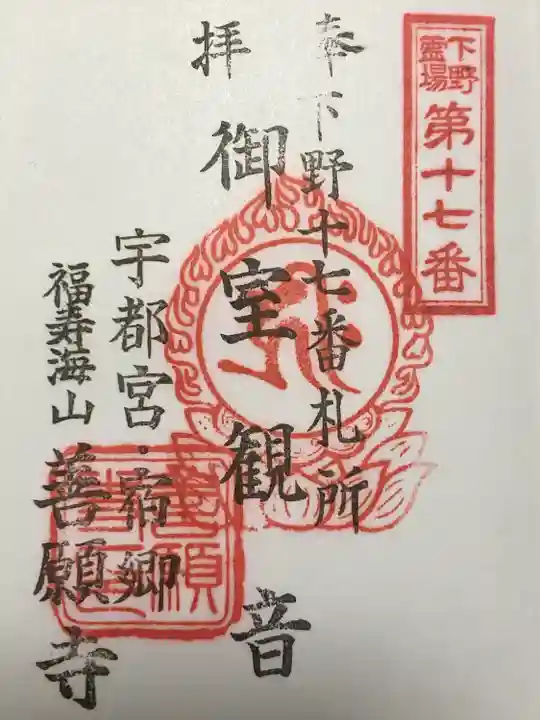 下野
霊場
第十七番
奉下野十七番札所
拝
御室観音
宇都宮・宿郷
福寿海山
善願寺